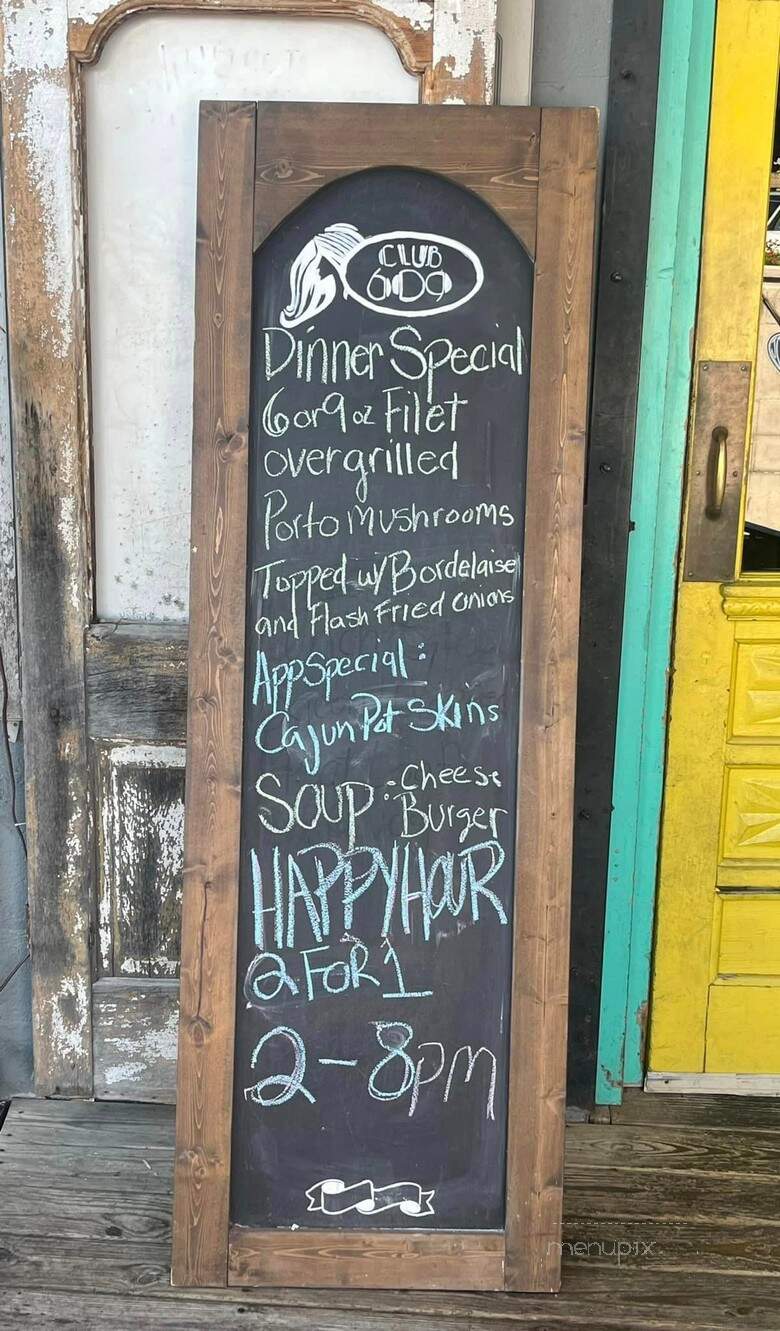 CLUB
609
Dinner Special
6 or 9 oz Filet
over grilled
Porto Mushrooms
Topped w/ Bordelaise
and Flash Fried Onions
App Special:
Cajun Pot Skins
Soup: Cheese
Burger
HAPPY HOUR
2 FOR 1
2-8pm
menupix